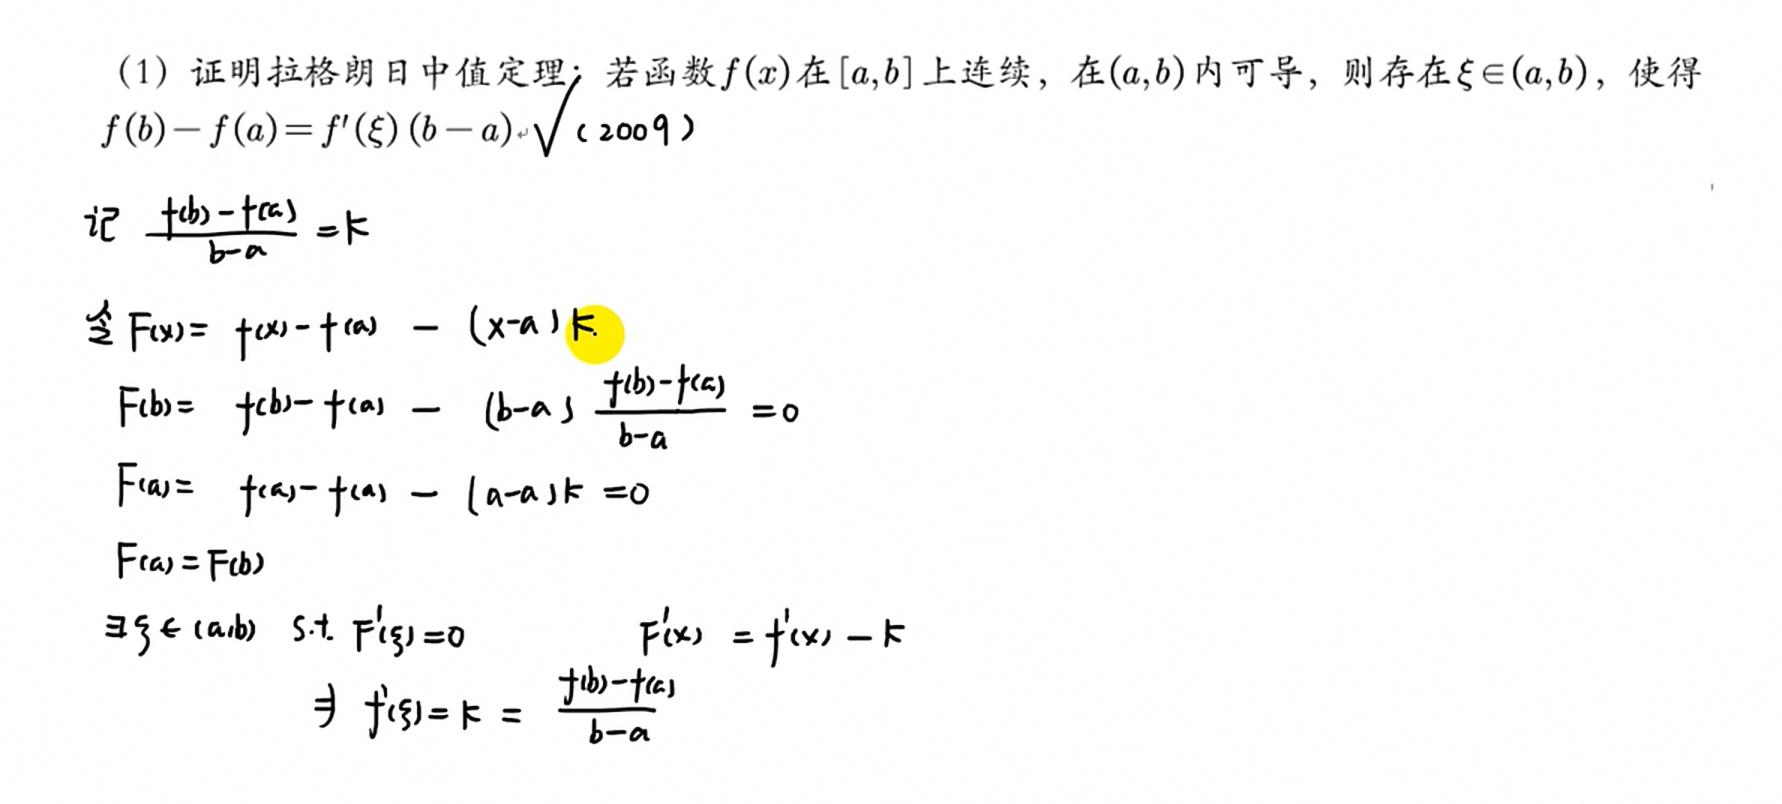 (1) 证明拉格朗日中值定理：若函数f(x)在[a,b]上连续，在(a,b)内可导，则存在ξ∈(a,b)，使得
f(b)－f(a)=f'(ξ)(b－a). √ (2009)
记 (f(b)-f(a))/(b-a) = k
令 F(x) = f(x)-f(a) - (x-a)k
F(b) = f(b)-f(a) - (b-a) (f(b)-f(a))/(b-a) = 0
F(a) = f(a)-f(a) - (a-a)k = 0
F(a) = F(b)
∃ξ∈(a,b) s.t. F'(ξ)=0 F'(x) = f'(x) - k
⇒ f'(ξ) = k = (f(b)-f(a))/(b-a)